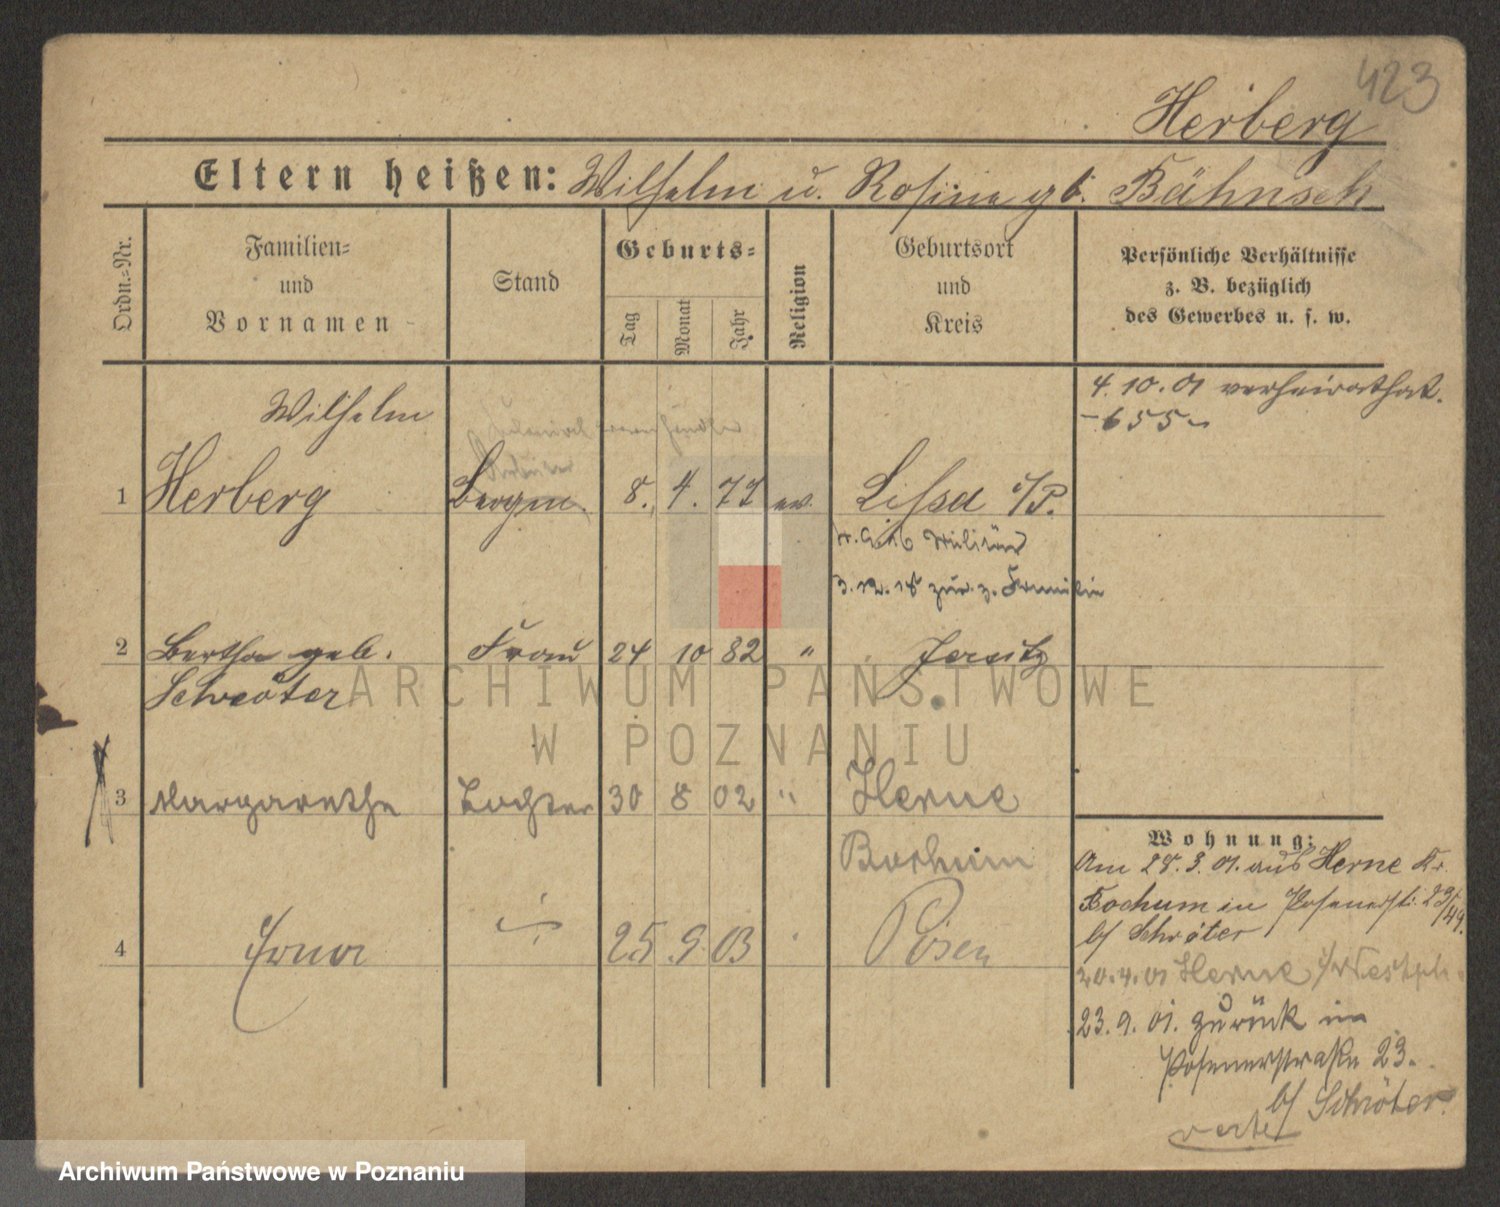 423
Herberg
Eltern heißen: Wilhelm u. Rosina gb. Bähnsch
Ordn.=Nr.
Familien=
und
Vornamen
Stand
Geburts=
Tag
Monat
Jahr
Religion
Geburtsort
und
Kreis
Persönliche Verhältnisse
z. B. bezüglich
des Gewerbes u. s. w.
4. 10. 01 verheirathet.
-655-
Wilhelm
1 Herberg Bergm. 8. 4. 77 ev. Lissa i/P.
Militär
3. 12. 18 zur. z. Familie
2 Bertha geb. Frau 24 10 82 " Jersitz
Schröter
3 Margarethe Tochter 30 8 02 " Herne
Bochum
4 Erna 25 9 03 Posen
Wohnung:
Am 28. 3. 01. aus Herne Kr.
Bochum in Posenerstr. 23/49.
b/ Schröter
20. 4. 01 Herne i/Westph.
23. 9. 01. zurück in
Posenerstraße 23.
b/ Schröter.
verte
ARCHIWUM PAŃSTWOWE
W POZNANIU
Archiwum Państwowe w Poznaniu